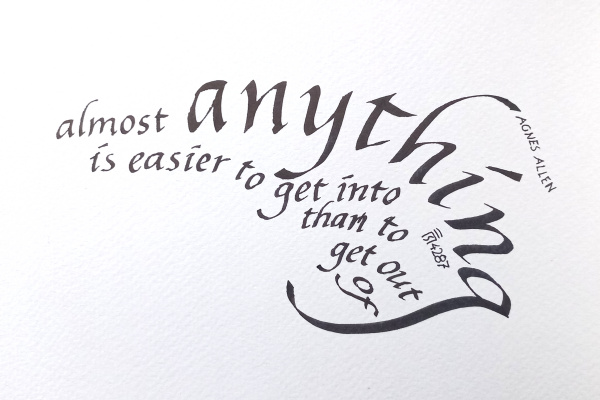 almost anything
is easier to get into
than to
get out
of
AGNES ALLEN